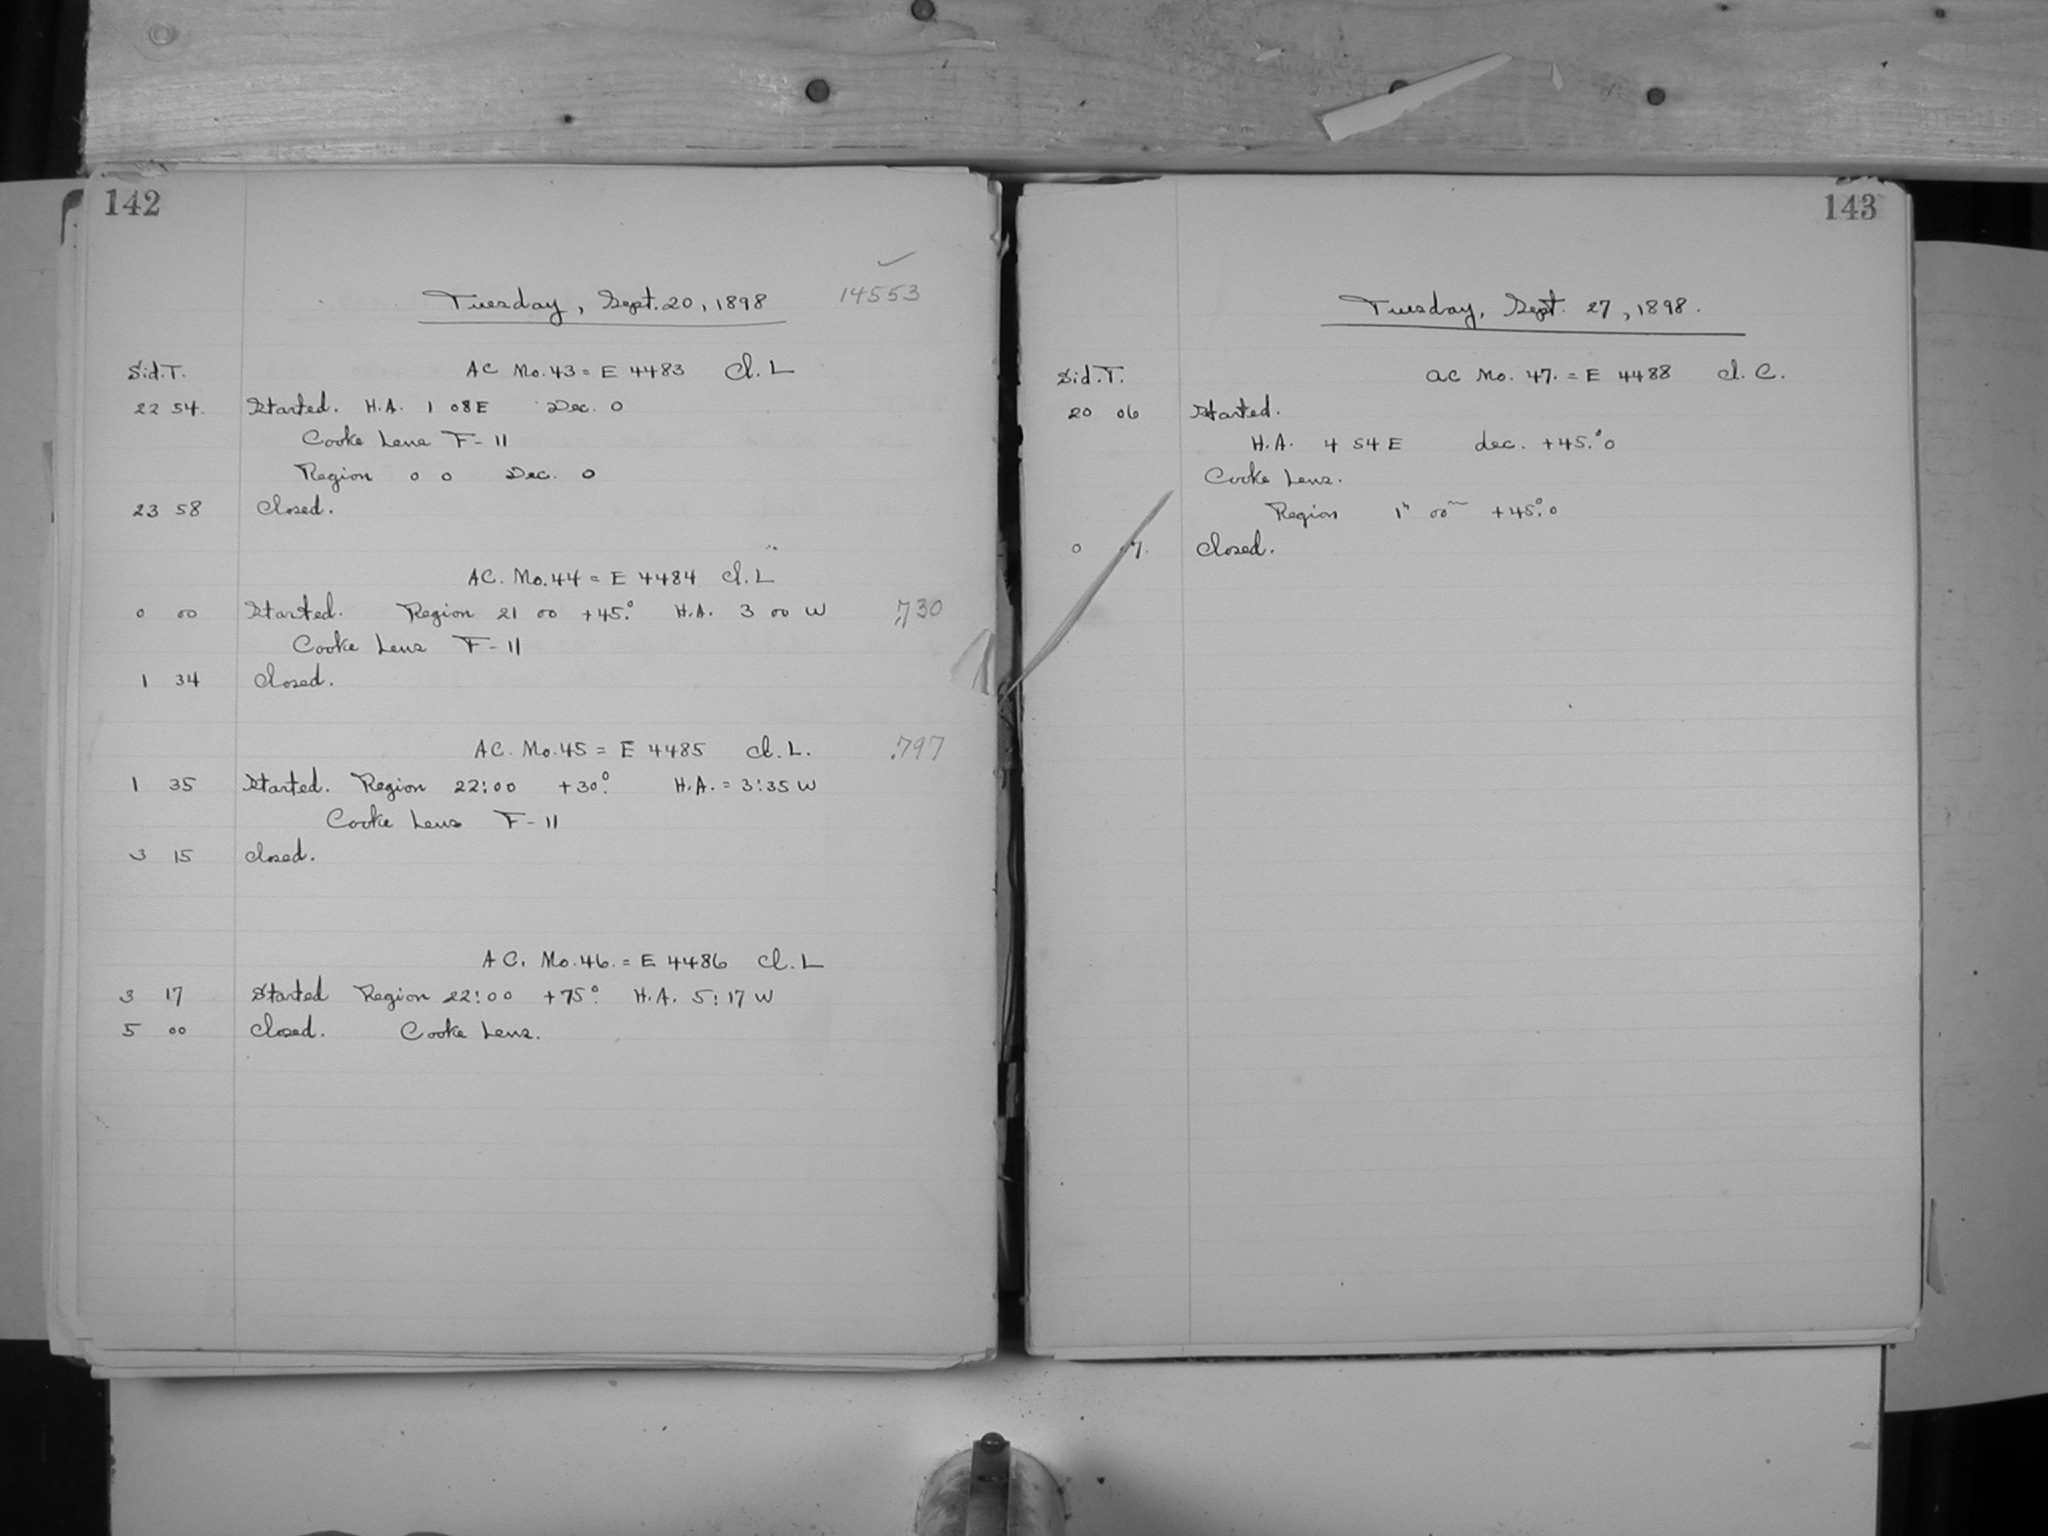 142
Tuesday, Sept. 20, 1898 14553
Sid. T. AC No. 43 = E 4483 Cl. L
22 54. Started. H.A. 1 08 E Dec. 0
Cooke Lens F-11
Region 0 0 Dec. 0
23 58 Closed.
AC. No. 44 = E 4484 Cl. L
0 00 Started. Region 21 00 +45.° H.A. 3 00 W .730
Cooke Lens F-11
1 34 Closed.
AC. No. 45 = E 4485 Cl. L. .797
1 35 Started. Region 22:00 +30.° H.A. = 3:35 W
Cooke Lens F-11
3 15 Closed.
AC. No. 46. = E 4486 Cl. L
3 17 Started Region 22:00 +75.° H.A. 5:17 W
5 00 Closed. Cooke Lens.
143
Tuesday, Sept. 27, 1898.
Sid. T. AC No. 47. = E 4488 Cl. C.
20 06 Started.
H.A. 4 54 E dec. +45.°0
Cooke Lens.
Region 1h 00m +45.°0
0 Closed.